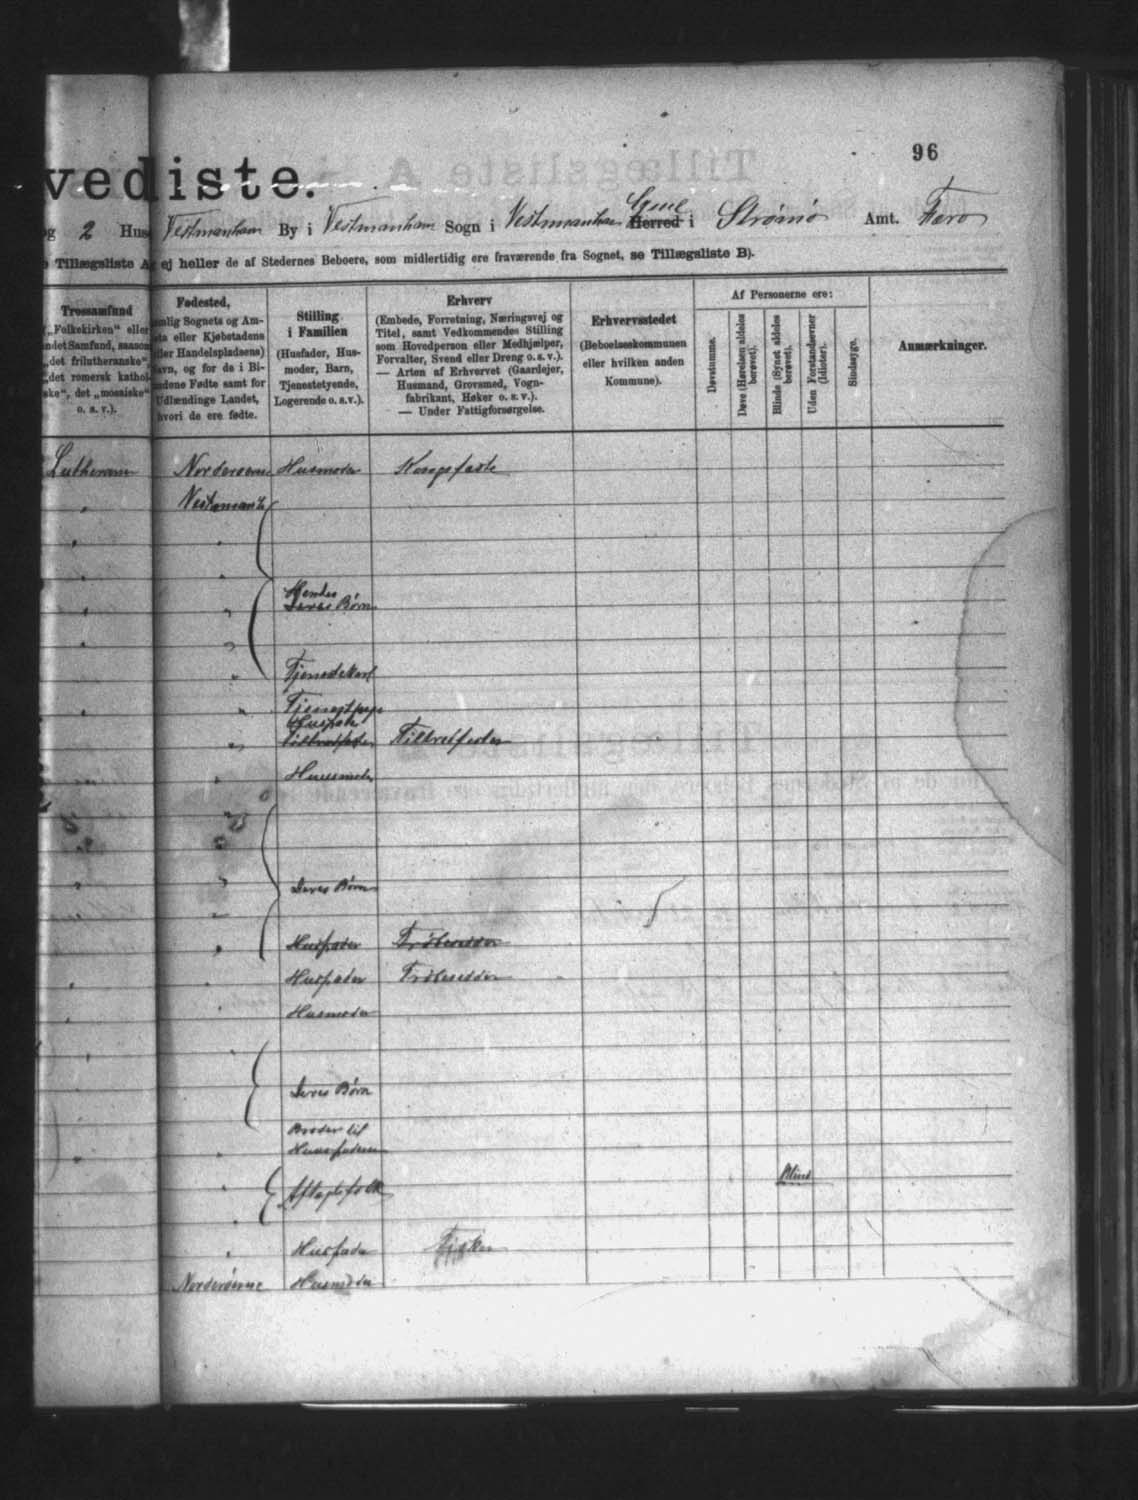 96
vedliste.
og 2 Hus Vestmanhavn By i Vestmanhavn Sogn i Vestmanhavn Herred i Strømø Amt. Færø
Tillægsliste A, ej heller de af Stedernes Beboere, som midlertidig ere fraværende fra Sognet, se Tillægsliste B).
Trossamfund
(„Folkekirken“ eller
andet Samfund, saasom
„det frilutheranske“,
„det romersk kathol-
ske“, det „mosaiske“
o. s. v.).
Fødested,
nemlig Sognets og Am-
ts eller Kjøbstadens
(eller Handelspladsens)
Navn, og for de i Bi-
landene Fødte samt for
Udlændinge Landet,
hvori de ere fødte.
Stilling
i Familien
(Husfader, Hus-
moder, Barn,
Tjenestetyende,
Logerende o.s.v.).
Erhverv
(Embede, Forretning, Næringsvej og
Titel, samt Vedkommendes Stilling
som Hovedperson eller Medhjælper,
Forvalter, Svend eller Dreng o. s. v.).
— Arten af Erhvervet (Gaardejer,
Husmand, Grovsmed, Vogn-
fabrikant, Høker o. s. v.).
— Under Fattigforsørgelse.
Erhvervsstedet
(Beboelseskommunen
eller hvilken anden
Kommune).
Af Personerne ere:
Døvstumme.
Døve (Hørelsen aldeles
berøvet).
Blinde (Synet aldeles
berøvet).
Uden Forstandsevner
(Idioter).
Sindssyge.
Anmærkninger.
Lutheraner Norderøerne Husmoder
Vestmanh.
Hendes
Deres Børn
Tjenestekarl
Tjenestepige
Husfader
Husmoder
Deres Børn
Husfader
Husfader
Husmoder
Deres Børn
Broder til
Husfaderen
Aftægtsfolk Blind
Husfader Fisker
Norderøerne Husmoder